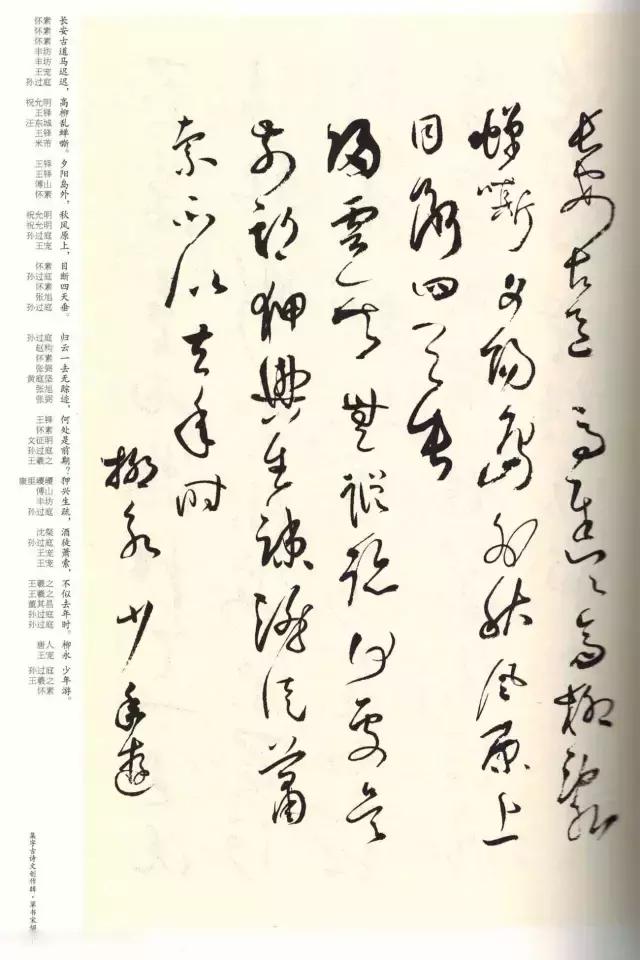 長安古道馬遲〻高柳亂
蟬嘶夕陽島外秋風原上
目斷四天垂
歸雲一去無蹤跡何處是
前期狎興生疎酒徒蕭
索不似去年時
柳永少年遊
长安古道马迟迟，
高柳乱蝉嘶。
夕阳岛外，
秋风原上，
目断四天垂。
归云一去无踪迹，
何处是前期？
狎兴生疏，
酒徒萧索，
不似去年时。
柳永
少年游。
怀素
怀素
怀素
丰坊
丰坊
王宠
孙过庭
祝允明
王铎
汪东城
王铎
米芾
王铎
王铎
傅山
怀素
祝允明
祝允明
孙过庭
王宠
怀素
孙过庭
怀素
张旭
孙过庭
孙过庭
赵构
怀素
张弼
黄庭坚
张旭
张弼
王铎
怀素
文征明
孙过庭
王羲之
康里巎巎
傅山
丰坊
孙过庭
沈粲
孙过庭
王宠
王宠
王羲之
王羲之
董其昌
孙过庭
孙过庭
唐人
王宠
孙过庭
王羲之
怀素
集字古诗文创作辑·草书宋词